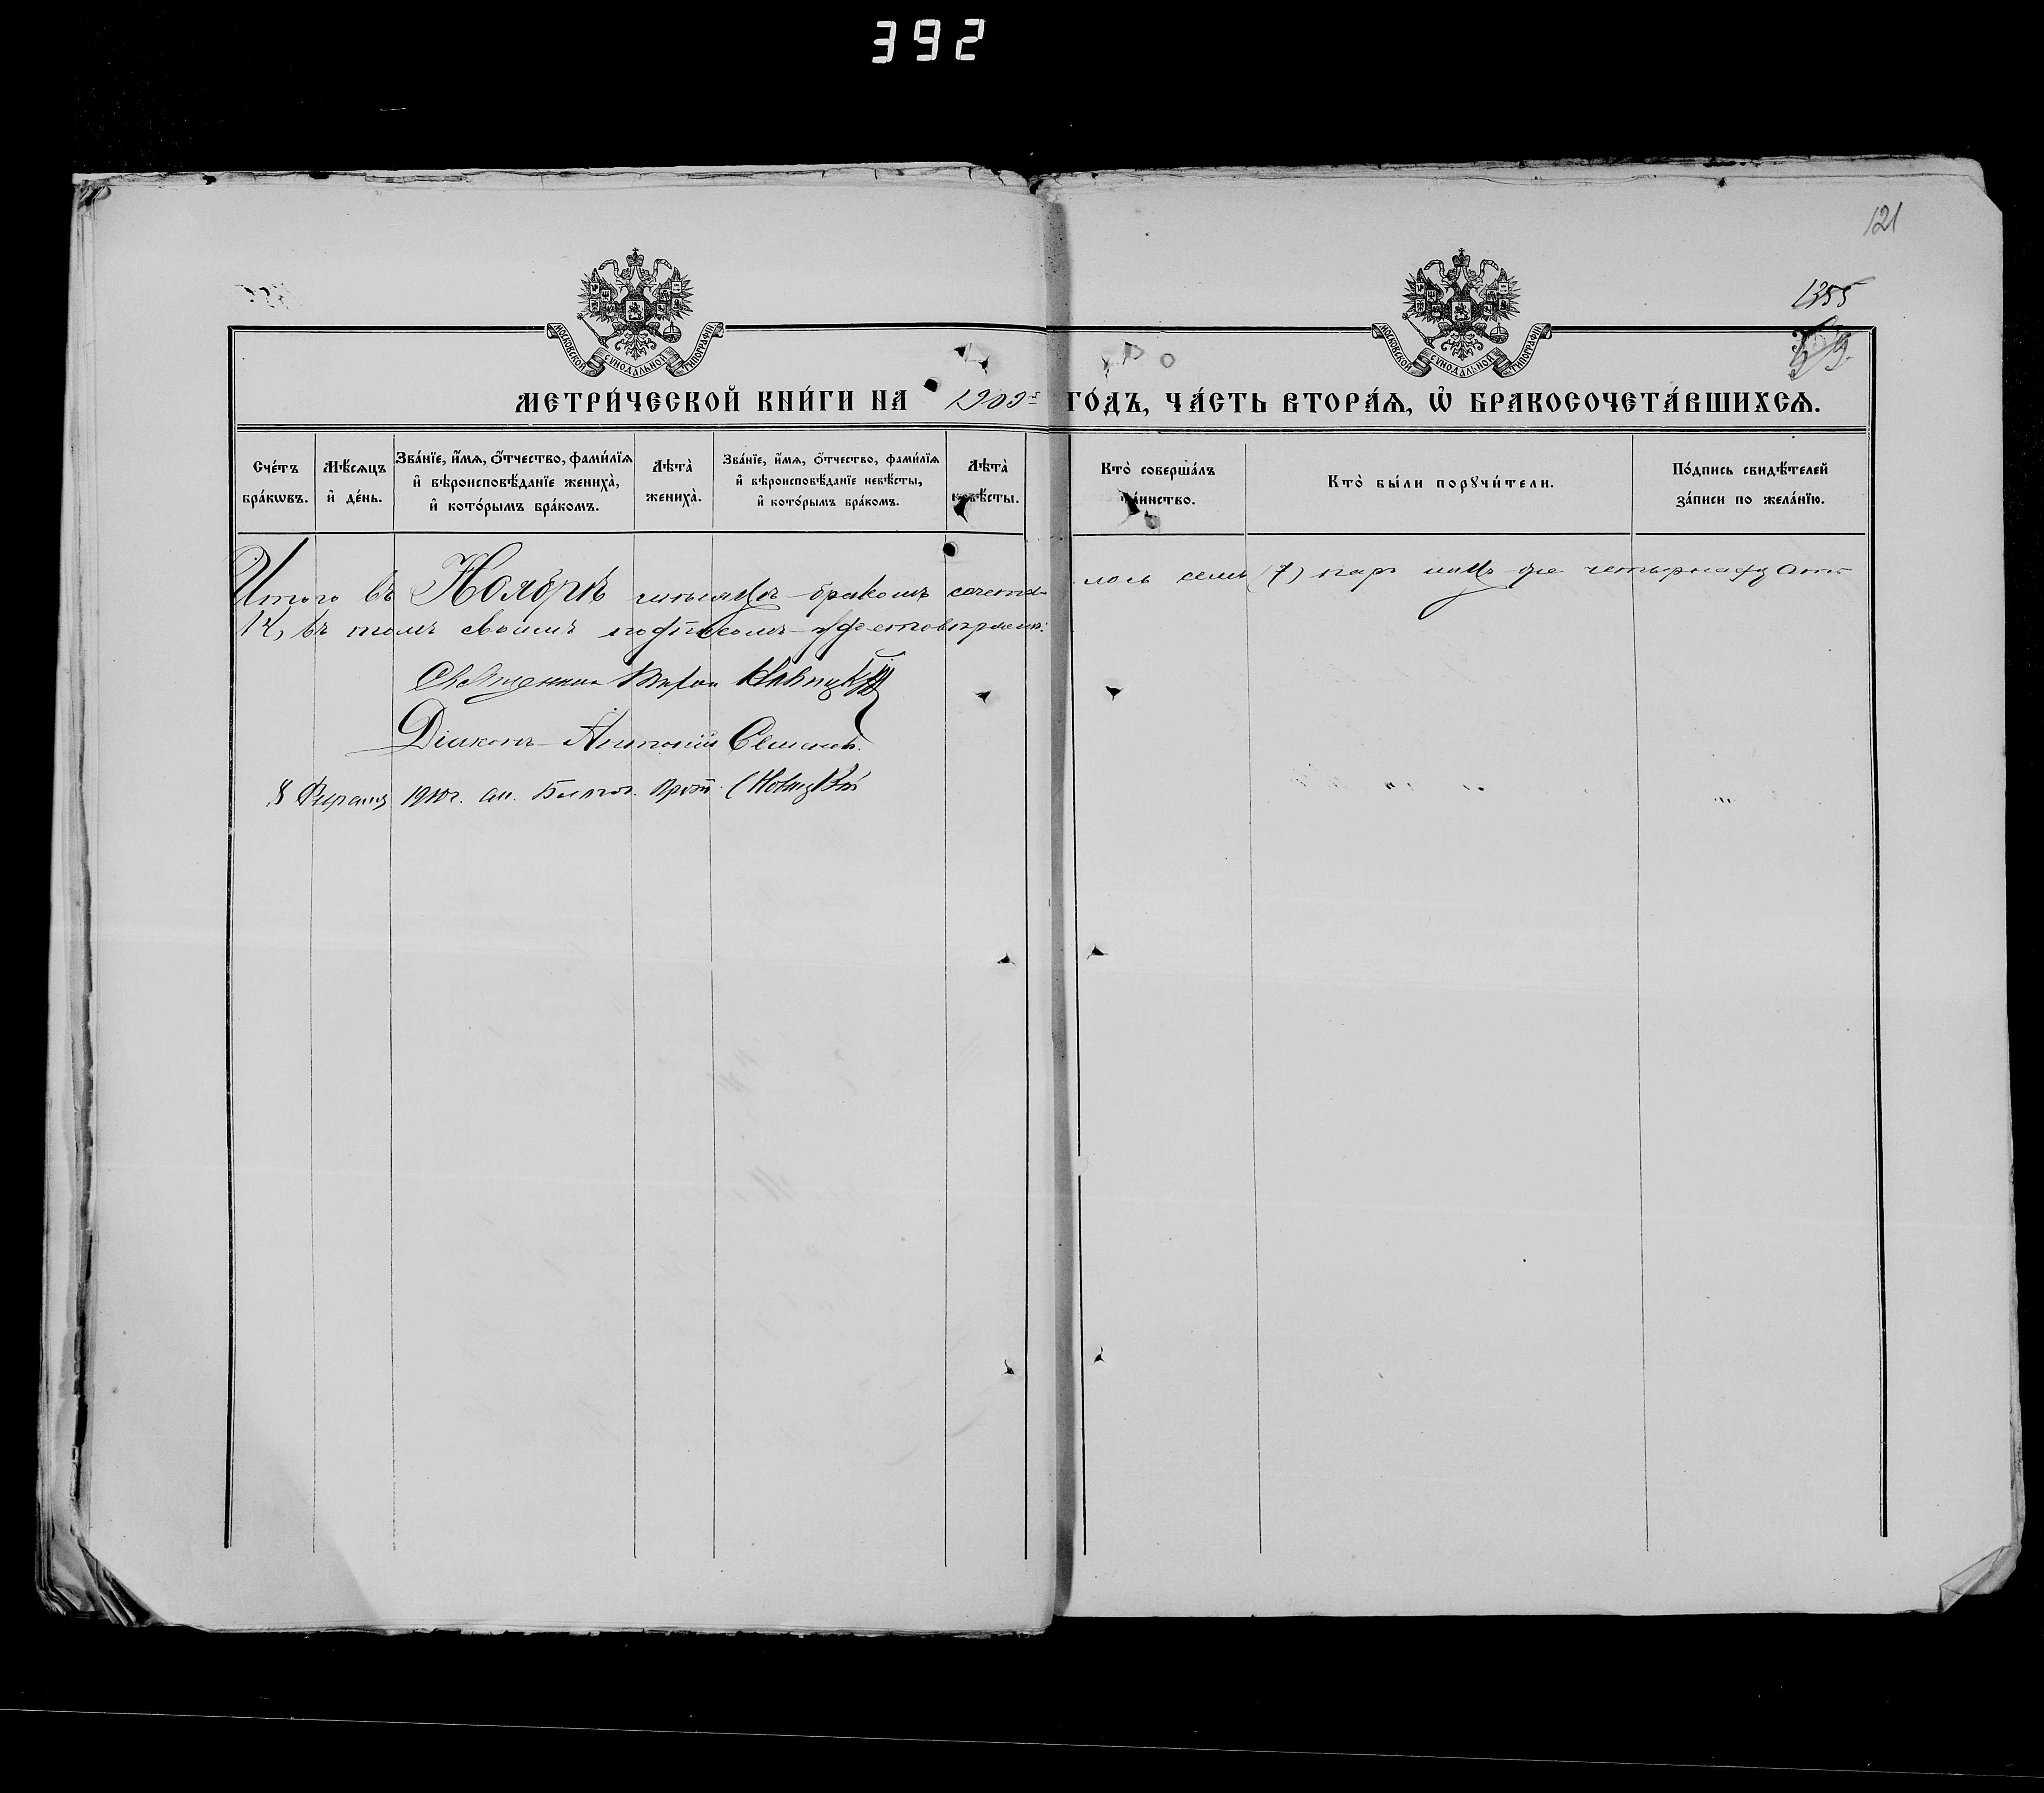 392
121
1355
МОСКОВСКОЙ СѴНОДАЛЬНОЙ ТИПОГРАФІИ
МОСКОВСКОЙ СѴНОДАЛЬНОЙ ТИПОГРАФІИ
МЕТРИ́ЧЕСКОЙ КНИ́ГИ НА 1909 ГО́ДЪ, ЧА́СТЬ ВТОРА́Ѧ, Ѽ БРАКОСОЧЕТА́ВШИХСѦ.
Сче́тъ бра́кѡвъ.
Мѣ́сѧцъ и҆ де́нь.
Зва́нїе, и҆́мѧ, ѻ҆́тчество, фами́лїѧ и҆ вѣроисповѣ́данїе жениха̀, и҆ кото́рымъ бра́комъ.
Лѣта̀ жениха̀.
Зва́нїе, и҆́мѧ, ѻ҆́тчество, фами́лїѧ и҆ вѣроисповѣ́данїе невѣ́сты, и҆ кото́рымъ бра́комъ.
Лѣта̀ невѣ́сты.
Кто̀ соверша́лъ та́инство.
Кто̀ бы́ли порꙋчи́тели.
По́дпись свидѣ́телей за́писи по жела́нїю.
Итого въ Ноябрѣ мѣсяцѣ бракомъ сочета- лось семь (7) паръ лицъ же четырнадцать
14, въ томъ своимъ подписомъ удостовѣряемъ:
Священникъ Новицкій
Діаконъ Антоній Семеновъ.
8 Февраля 1910 г. Прот. Новицкій